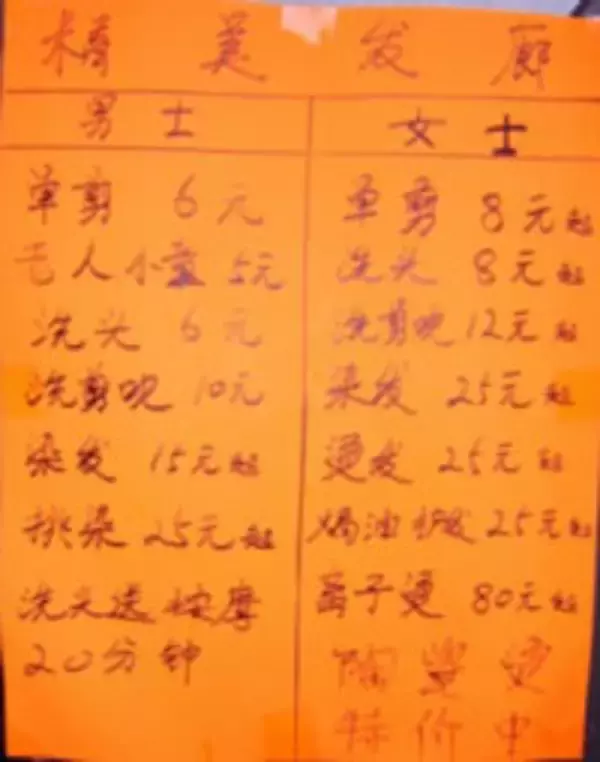 精英发廊
男士
单剪 6元
老人小童 5元
洗头 6元
洗剪吹 10元
染发 15元起
挑染 25元起
洗头送按摩
20分钟
女士
单剪 8元起
洗头 8元起
洗剪吹 12元起
染发 25元起
烫发 25元起
焗油护发 25元起
离子烫 80元起
陶瓷烫
特价中